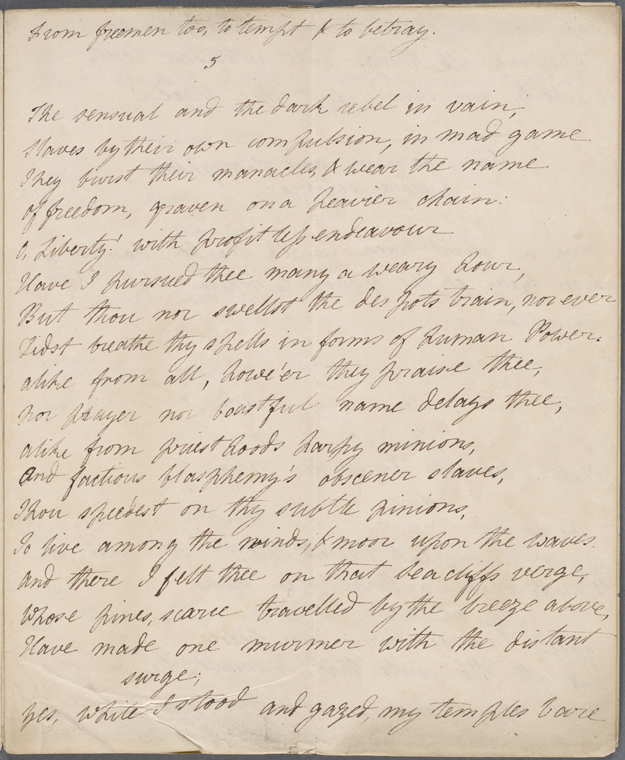 From freemen too, to tempt & to betray.
5
The sensual and the dark rebel in vain,
Slaves by their own compulsion, in mad game
They burst their manacles, & wear the name
of freedom, graven on a heavier chain.
O, Liberty! with profitless endeavour
Have I pursued thee many a weary hour,
But thou nor swellst the despots train, nor ever
Didst breathe thy spells in forms of human Power.
alike from all, howe'er they praise thee,
nor prayer nor boastful name delays thee,
alike from priesthoods harpy minions,
and factious blasphemy's obscener slaves,
Thou speedest on thy subtle pinions,
To live among the winds, & moor upon the waves.
and there I felt thee on that sea cliffs verge,
Whose pines, scarce travelled by the breeze above,
Have made one murmer with the distant
surge;
yes, while I stood and gazed, my temples bare